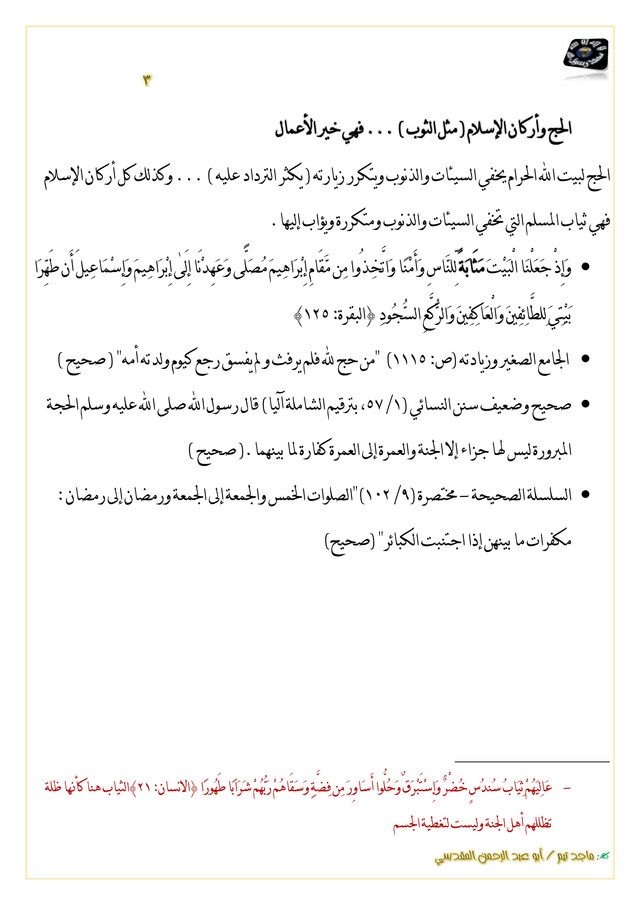 ٣
الحج وأركان الإسلام (مثل الثوب) ... فهي خير الأعمال
الحج لبيت الله الحرام يخفي السيئات والذنوب ويتكرر زيارته (يكثر الترداد عليه) ... وكذلك كل أركان الإسلام
فهي ثياب المسلم التي تخفي السيئات والذنوب ومتكررة ويؤاب إليها .
• وَإِذْ جَعَلْنَا الْبَيْتَ مَثَابَةً لِّلنَّاسِ وَأَمْنًا وَاتَّخِذُوا مِن مَّقَامِ إِبْرَاهِيمَ مُصَلًّى وَعَهِدْنَا إِلَىٰ إِبْرَاهِيمَ وَإِسْمَاعِيلَ أَن طَهِّرَا
بَيْتِيَ لِلطَّائِفِينَ وَالْعَاكِفِينَ وَالرُّكَّعِ السُّجُودِ ﴿البقرة: ١٢٥﴾
• الجامع الصغير وزيادته (ص: ١١١٥) "من حج لله فلم يرفث ولم يفسق رجع كيوم ولدته أمه" (صحيح)
• صحيح وضعيف سنن النسائي (١/ ٥٧، بترقيم الشاملة آليا) قال رسول الله صلى الله عليه وسلم الحجة
المبرورة ليس لها جزاء إلا الجنة والعمرة إلى العمرة كفارة لما بينهما . (صحيح)
• السلسلة الصحيحة – مختصرة (٩/ ١٠٢) "الصلوات الخمس والجمعة إلى الجمعة ورمضان إلى رمضان :
مكفرات ما بينهن إذا اجتنبت الكبائر" (صحيح)
– عَالِيَهُمْ ثِيَابُ سُندُسٍ خُضْرٌ وَإِسْتَبْرَقٌ وَحُلُّوا أَسَاوِرَ مِن فِضَّةٍ وَسَقَاهُمْ رَبُّهُمْ شَرَابًا طَهُورًا ﴿الانسان: ٢١﴾ الثياب هنا كأنها ظلة
تظللهم أهل الجنة وليست لتغطية الجسم
: ماجد تيم / أبو عبد الرحمن المقدسي